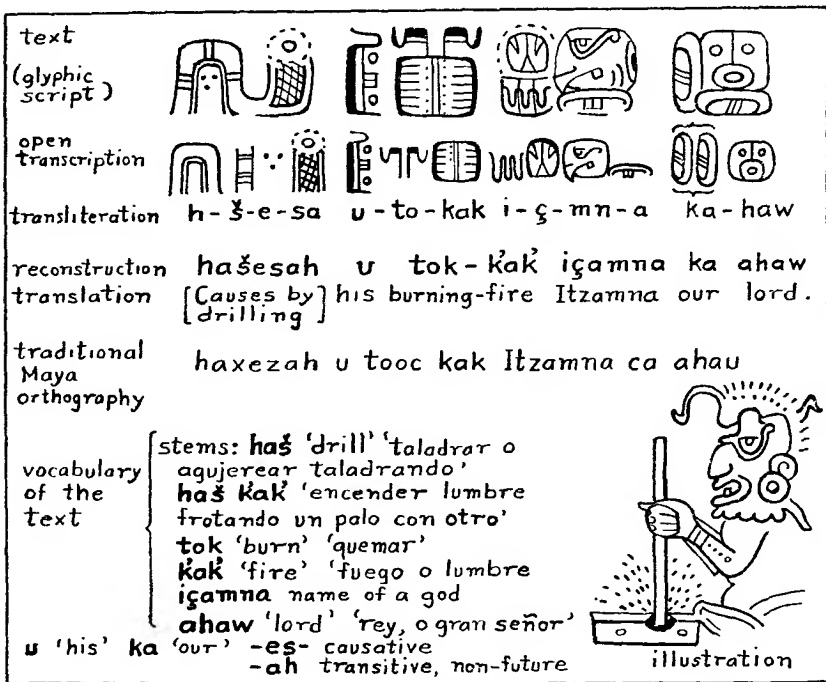 text
(glyphic
script)
open
transcription
transliteration h-š-e-sa u-to-kak i-ç-mn-a ka-haw
reconstruction hašesah u tok-k̓ak̓ içamna ka ahaw
translation [Causes by drilling] his burning-fire Itzamna our lord.
traditional
Maya
orthography
haxezah u tooc kak Itzamna ca ahau
vocabulary
of the
text
stems: haš 'drill' 'taladrar o
agujerear taladrando'
haš k̓ak̓ 'encender lumbre
frotando un palo con otro'
tok 'burn' 'quemar'
k̓ak̓ 'fire' 'fuego o lumbre
içamna name of a god
ahaw 'lord' 'rey, o gran señor'
u 'his' ka 'our' -es- causative
-ah transitive, non-future
illustration